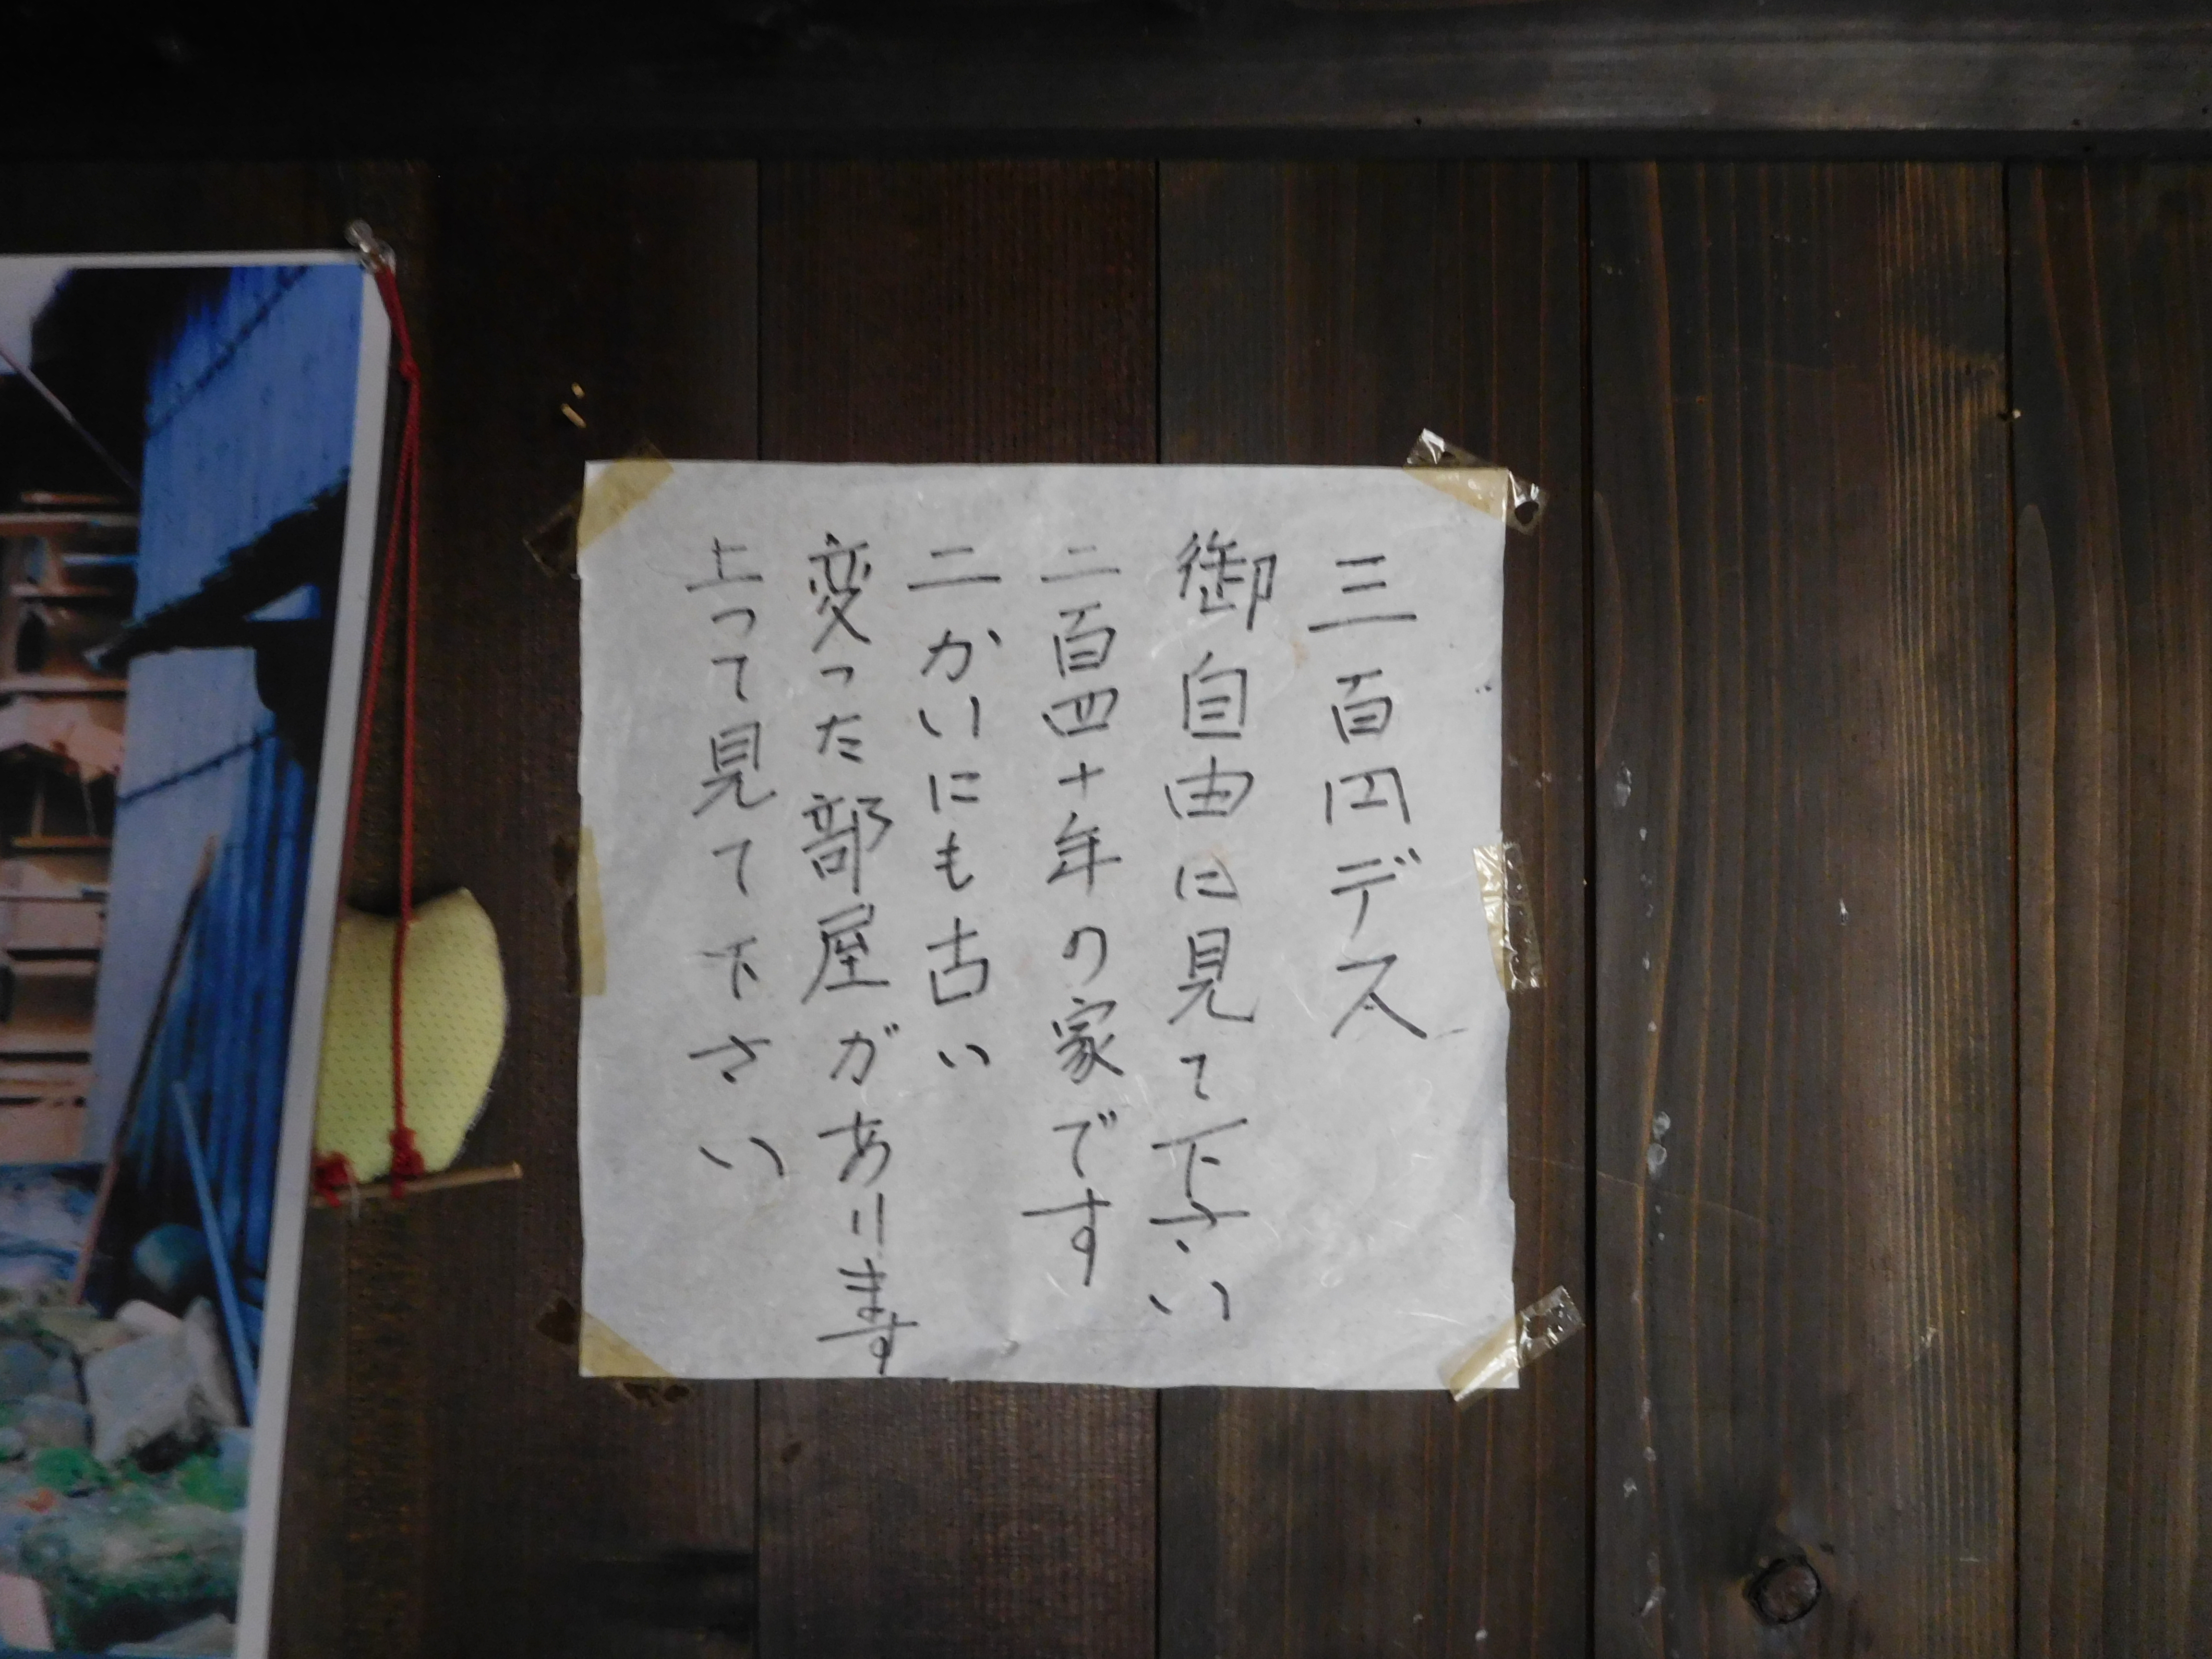 三百円デス
御自由に見て下さい
二百四十年の家です
二かいにも古い
変った部屋があります
上って見て下さい